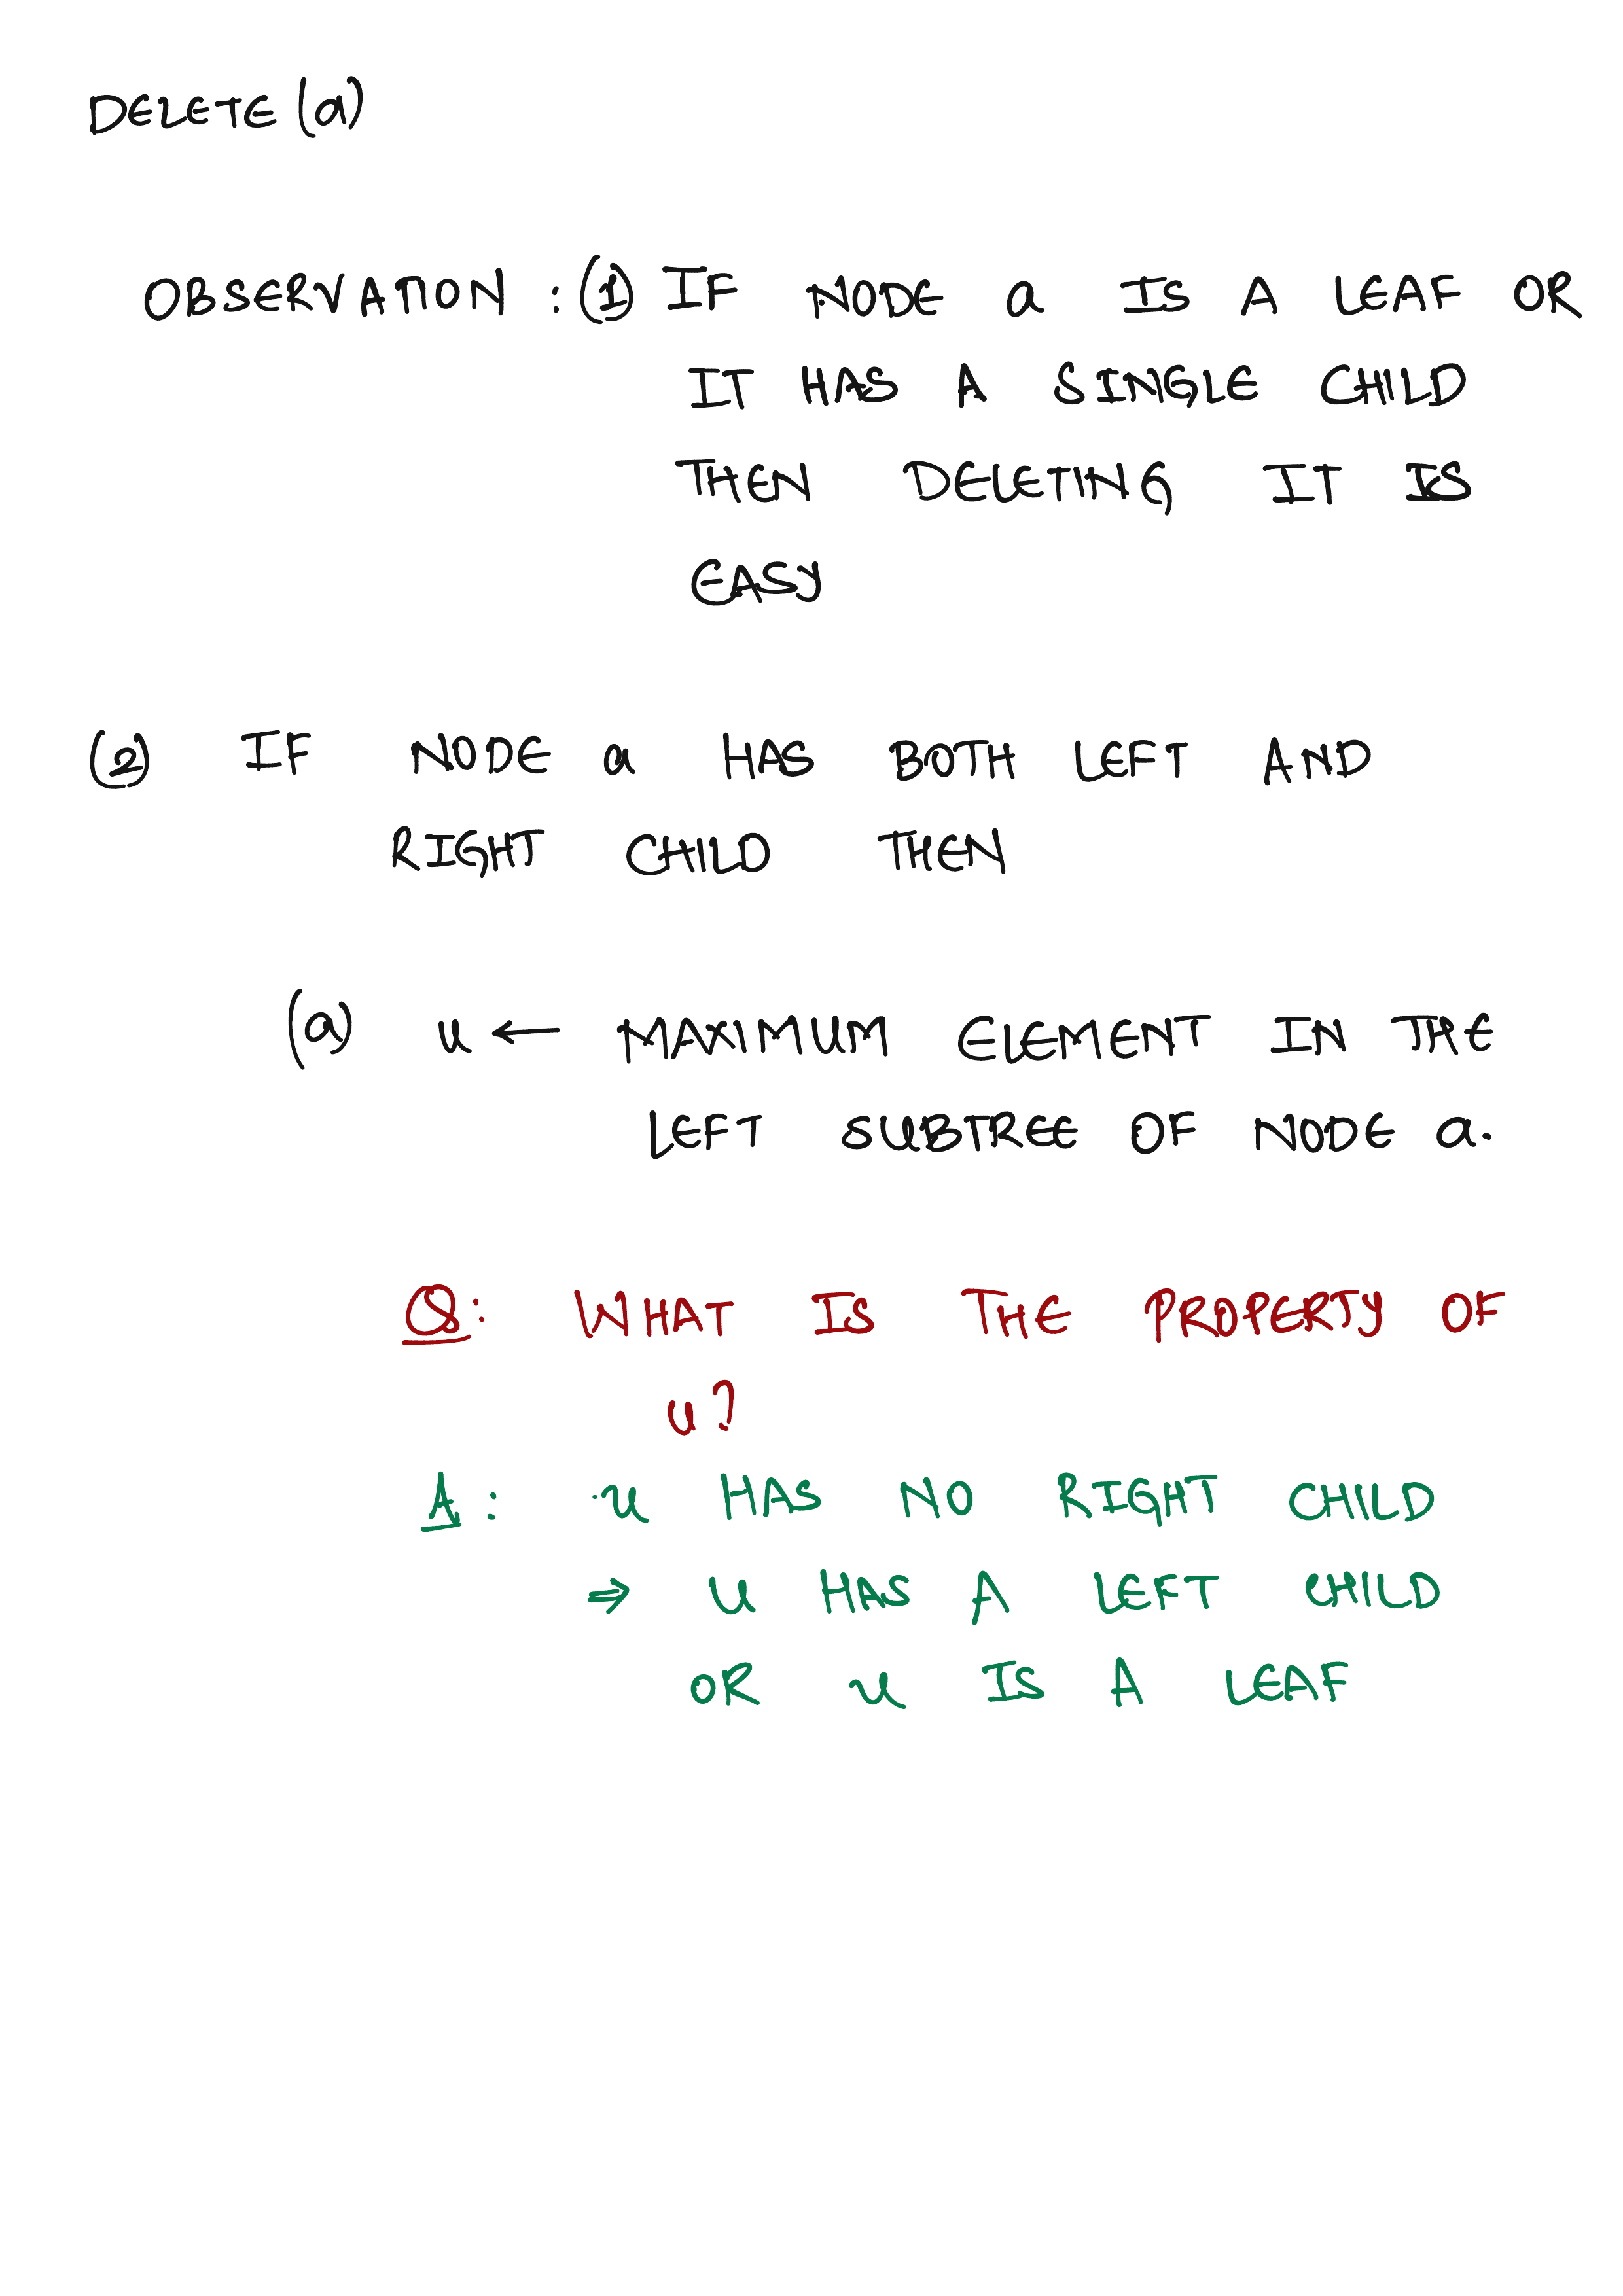 DELETE (a)
OBSERVATION : (1) IF NODE a IS A LEAF OR
IT HAS A SINGLE CHILD
THEN DELETING IT IS
EASY
(2) IF NODE a HAS BOTH LEFT AND
RIGHT CHILD THEN
(a) u ← MAXIMUM ELEMENT IN THE
LEFT SUBTREE OF NODE a.
Q: WHAT IS THE PROPERTY OF
u?
A: u HAS NO RIGHT CHILD
⇒ u HAS A LEFT CHILD
OR u IS A LEAF